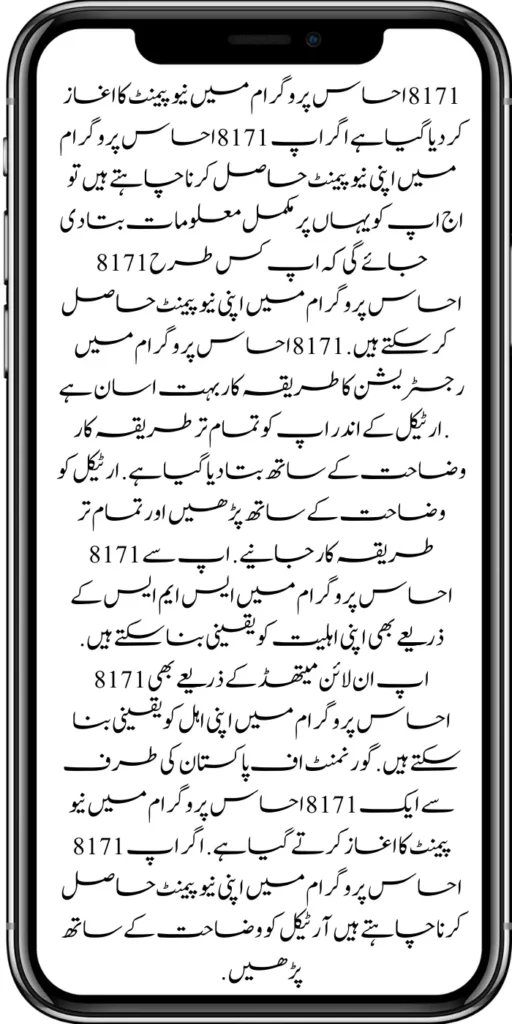 8171احساس پروگرام میں نیو پیمنٹ کا اغاز
کر دیا گیا ہے اگر اپ 8171احساس پروگرام
میں اپنی نیو پیمنٹ حاصل کرنا چاہتے ہیں تو
اج اپ کو یہاں پر مکمل معلومات بتا دی
جائے گی کہ اپ کس طرح8171
احساس پروگرام میں اپنی نیو پیمنٹ حاصل
کر سکتے ہیں.8171احساس پروگرام میں
رجسٹریشن کا طریقہ کار بہت اسان ہے
.ارٹیکل کے اندر اپ کو تمام تر طریقہ کار
وضاحت کے ساتھ بتا دیا گیا ہے.ارٹیکل کو
وضاحت کے ساتھ پڑھیں اور تمام تر
طریقہ کار جانیے.اپ سے 8171
احساس پروگرام میں ایس ایم ایس کے
ذریعے بھی اپنی اہلیت کو یقینی بنا سکتے ہیں.
اپ ان لائن میتھڈ کے ذریعے بھی 8171
احساس پروگرام میں اپنی اہل کو یقینی بنا
سکتے ہیں.گورنمنٹ اف پاکستان کی طرف
سے ایک 8171احساس پروگرام میں نیو
پیمنٹ کا اغاز کرتے گیا ہے.اگر اپ 8171
احساس پروگرام میں اپنی نیو پیمنٹ حاصل
کرنا چاہتے ہیں آرٹیکل کو وضاحت کے ساتھ
پڑھیں.